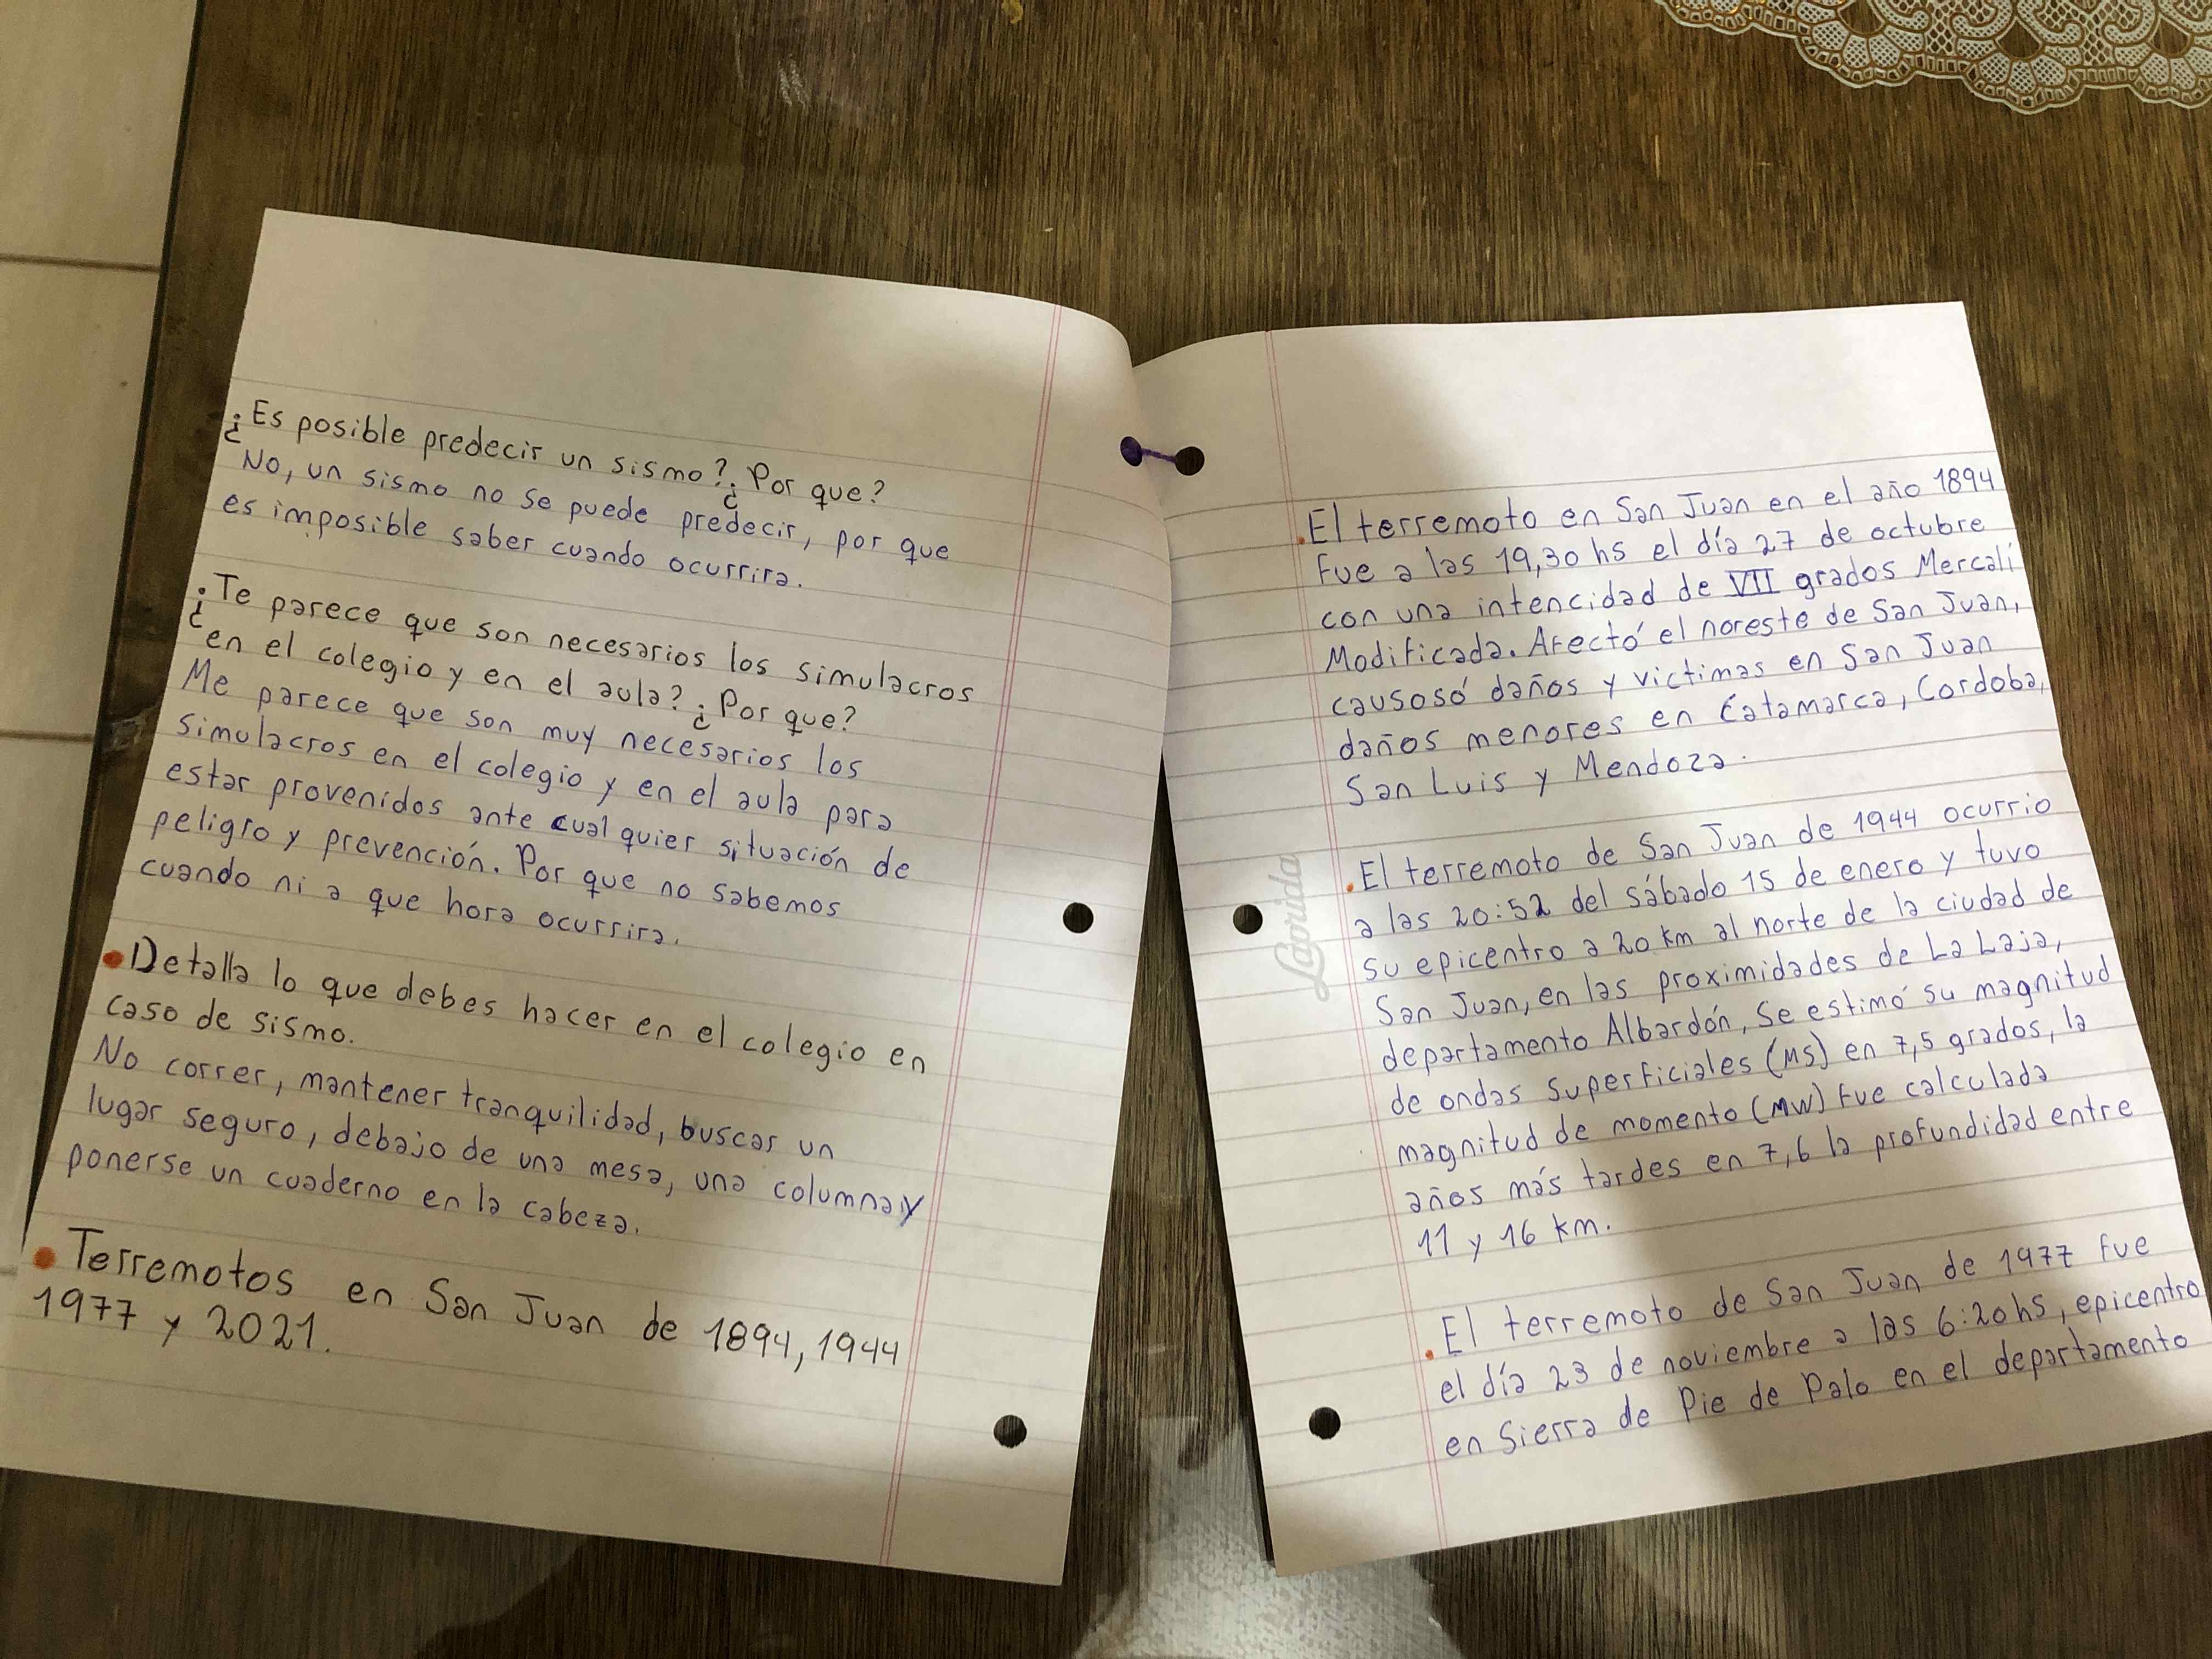 ¿Es posible predecir un sismo? ¿Por que?
No, un sismo no se puede predecir, por que
es imposible saber cuando ocurrira.
¿Te parece que son necesarios los simulacros
en el colegio y en el aula? ¿Por que?
Me parece que son muy necesarios los
simulacros en el colegio y en el aula para
estar provenidos ante cualquier situación de
peligro y prevención. Por que no sabemos
cuando ni a que hora ocurrira.
• Detalla lo que debes hacer en el colegio en
caso de sismo.
No correr, mantener tranquilidad, buscar un
lugar seguro, debajo de una mesa, una columna y
ponerse un cuaderno en la cabeza.
• Terremotos en San Juan de 1894, 1944
1977 y 2021.
. El terremoto en San Juan en el año 1894
fue a las 19,30 hs el día 27 de octubre
con una intencidad de VII grados Mercali
Modificada. Afectó el noreste de San Juan,
causosó daños y victimas en San Juan
daños menores en Catamarca, Cordoba,
San Luis y Mendoza.
Laprida
. El terremoto de San Juan de 1944 ocurrio
a las 20:52 del sábado 15 de enero y tuvo
su epicentro a 20 km al norte de la ciudad de
San Juan, en las proximidades de La Laja,
departamento Albardón, Se estimó su magnitud
de ondas superficiales (MS) en 7,5 grados, la
magnitud de momento (MW) fue calculada
años más tardes en 7,6 la profundidad entre
11 y 16 km.
. El terremoto de San Juan de 1977 fue
el día 23 de noviembre a las 6:20hs, epicentro
en Sierra de Pie de Palo en el departamento